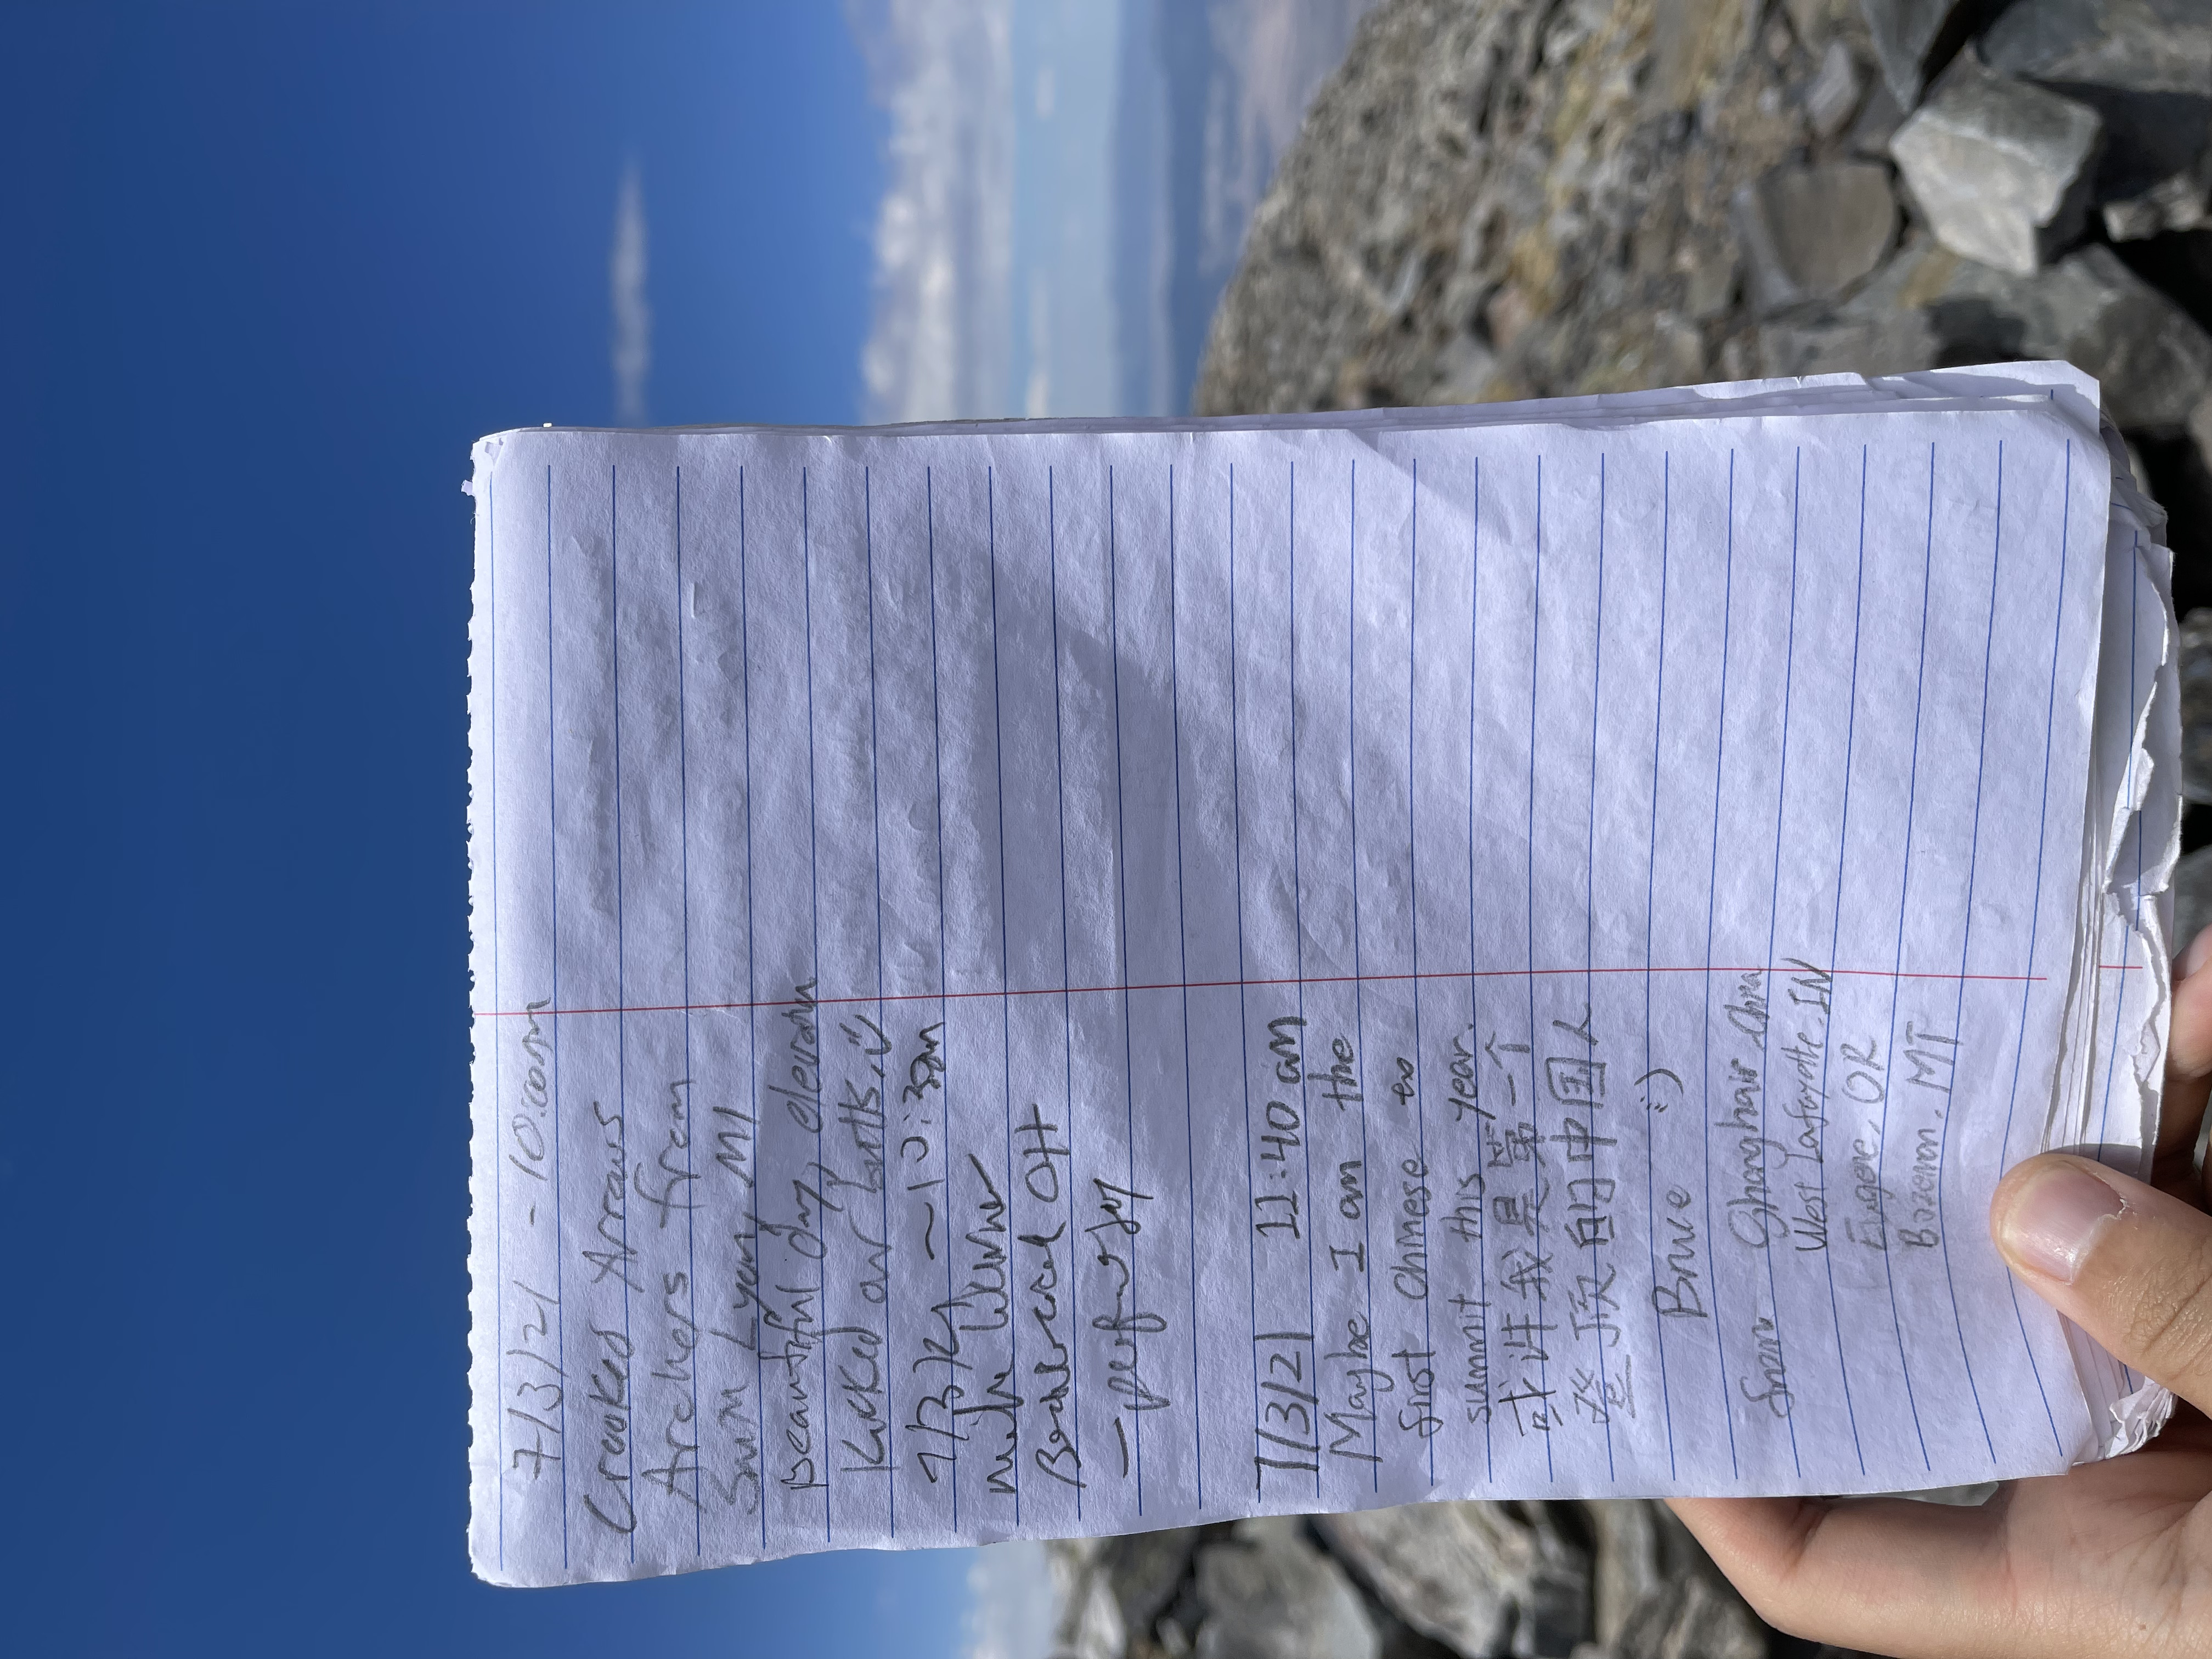 7/3/21 - 10:00am
Crooked Arrows
Archers from
Lyon, MI
Beautiful day, elevation
Kicked our butts.
7/3/21 ~10:30am
Mike
OH
- perfect day
7/3/21 11:40 am
Maybe I am the
first Chinese to
summit this year.
或许我是第一个
登顶的中国人
Bruce :)
from Shanghai, China
West Lafayette, IN
Eugene, OR
Bozeman, MT